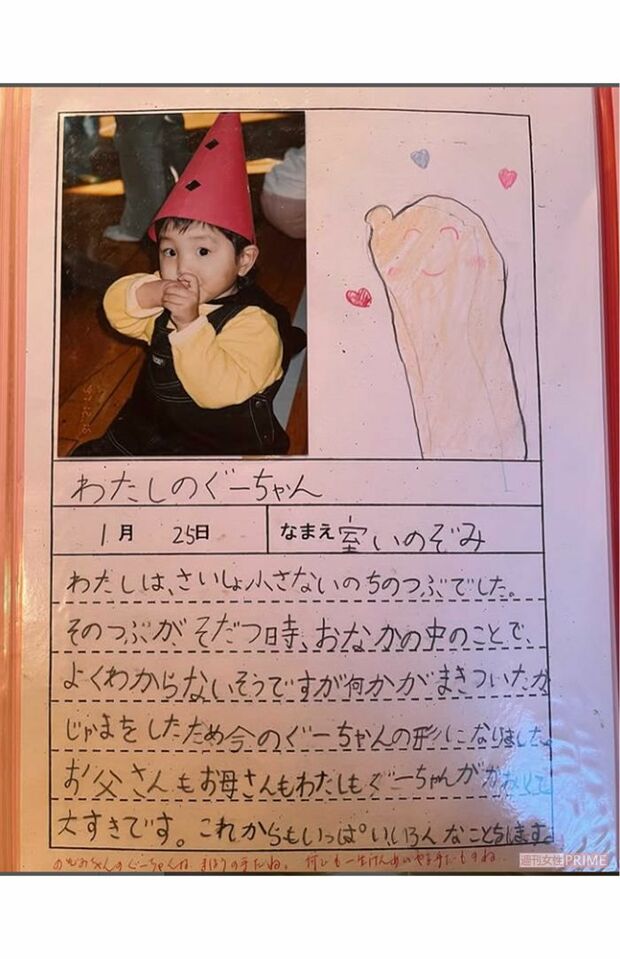 '97 12 16
わたしのぐーちゃん
1月 25日 なまえ 室いのぞみ
わたしは、さいしょ小さないのちのつぶでした。
そのつぶが、そだつ時、おなかの中のことで、
よくわからないそうですが何かがまきついたか
じゃまをしたため今のぐーちゃんの形になりました。
お父さんもお母さんもわたしもぐーちゃんがかわいくて
大すきです。これからもいっぱいいろんなことをします。
のぞみちゃんのぐーちゃんは、まほうの手だね。何でも一生けんめいやる手だものね。
週刊女性PRIME